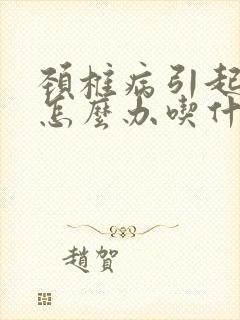 頚椎病引起
怎麼办喫什
趙賀